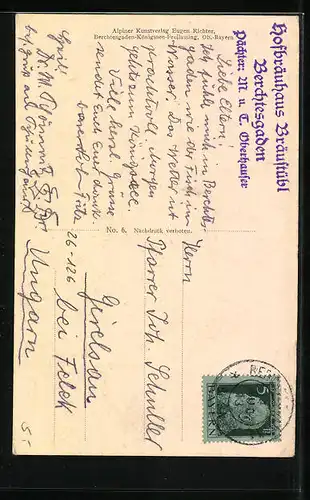 Alpiner Kunstverlag Eugen Richter,
Berchtesgaden-Königssee-Freilassing, Ob.-Bayern
Hofbräuhaus Bräustübl
Berchtesgaden
Pächter: M. u. T. Oberhauser
Liebe Eltern!
Ich fühle mich in Berchtes-
gaden wie der Fisch im
Wasser. Das Wetter ist
prachtvoll, morgen
geht's zum Königssee.
Viele herzl. Grüsse
sendet Euch Euer dank-
No. 6. Nachdruck verboten.
Herrn
Pfarrer Joh. Schuller
Girelsau
bei Felek
Ungarn
26-126
5
BAYERN
5.-